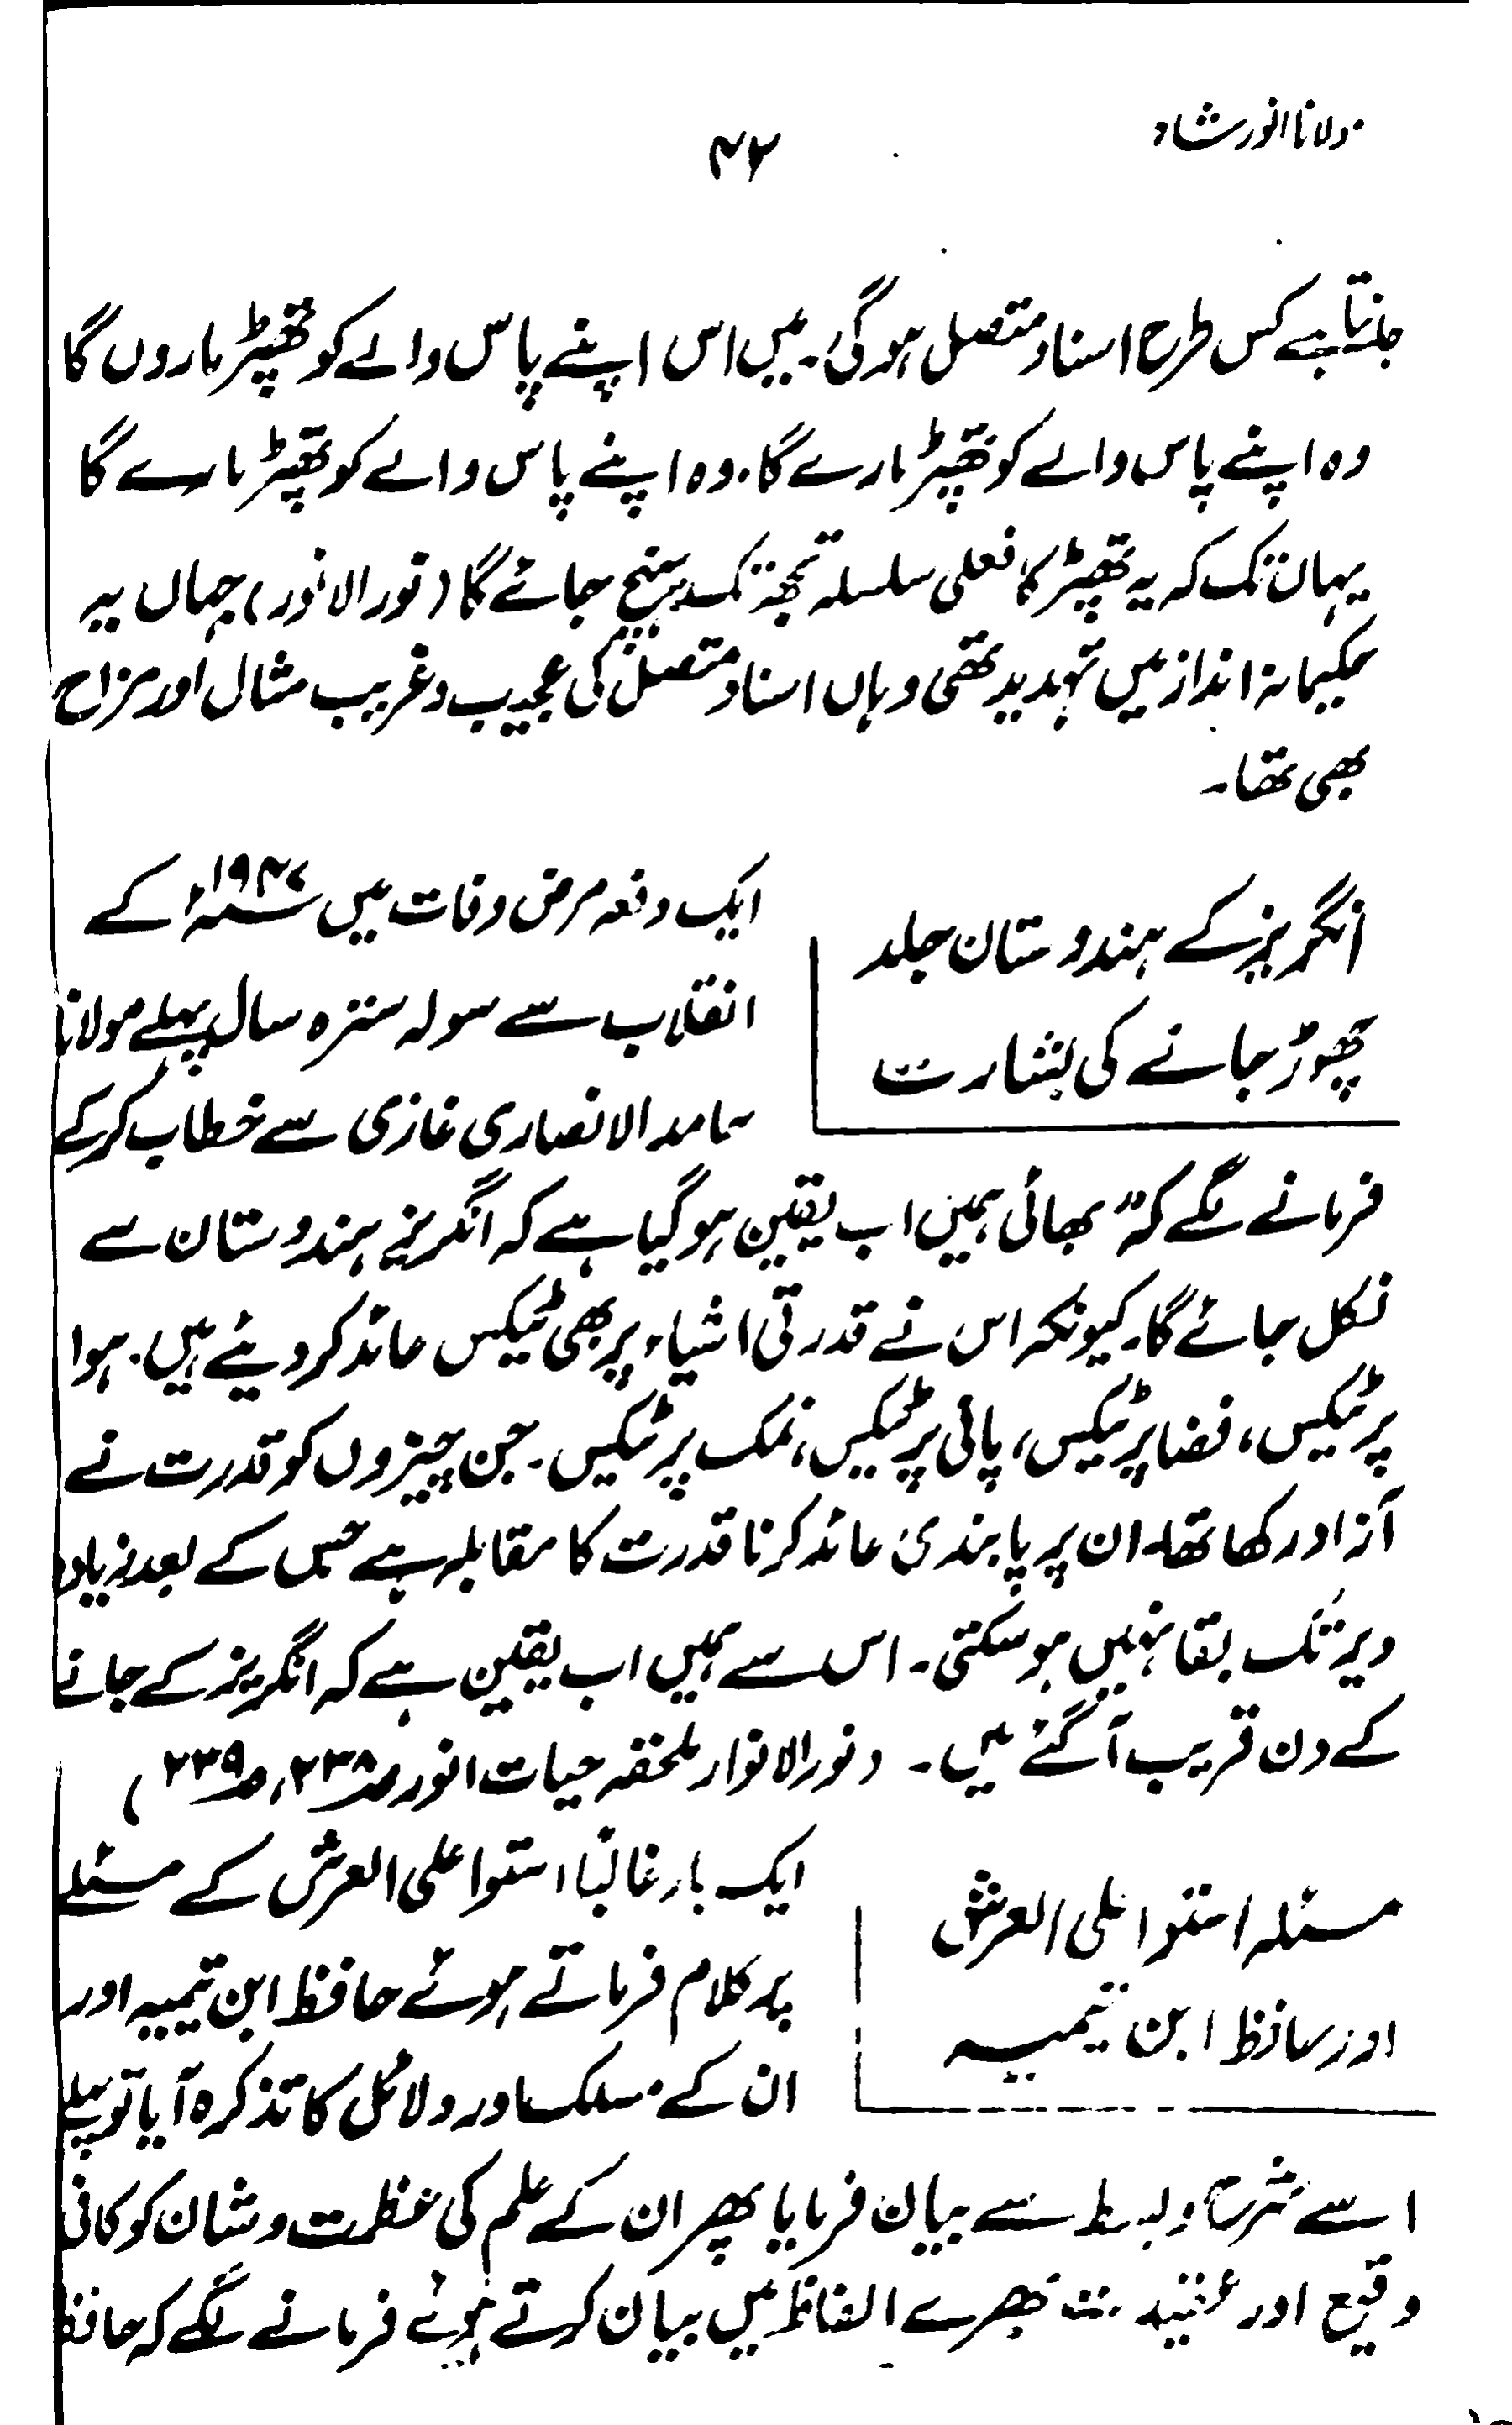 مولانا انور شاہ
۴۲
جانتا ہے کس طرح اسناد متصل ہوگی۔ میں اس اپنے پاس والے کو تھپڑ ماروں گا
وہ اپنے پاس والے کو تھپڑ مارے گا۔ وہ اپنے پاس والے کو تھپڑ مارے گا
یہاں تک کہ یہ تھپڑ کا فعلی سلسلہ تجھ تک پہنچ جائے گا (نور الانور) جہاں یہ
حکیمانہ انداز میں تہدید تھی وہاں اسناد متصل کی عجیب و غریب مثال اور مزاح
بھی تھا۔
انگریز کے ہندوستان جلد
چھوڑ جانے کی بشارت
ایک دفعہ مرض وفات میں ۱۹۴۷ء کے
انقلاب سے سولہ سترہ سال پہلے مولانا
حامد الانصاری غازی سے خطاب کرکے
فرمانے لگے کہ "بھائی ہمیں اب یقین ہوگیا ہے کہ انگریز ہندوستان سے
نکل جائے گا۔ کیونکہ اس نے قدرتی اشیاء پر بھی ٹیکس عائد کر دیئے ہیں۔ ہوا
پر ٹیکس، فضا پر ٹیکس، پانی پر ٹیکس، نمک پر ٹیکس۔ جن چیزوں کو قدرت نے
آزاد رکھا تھا۔ ان پر پابندی عائد کرنا قدرت کا مقابلہ ہے جس کے بعد زیادہ
دیر تک بقا نہیں ہوسکتی۔ اس سے ہمیں اب یقین ہے کہ انگریز کے جانے
کے دن قریب آگئے ہیں۔ (نور الانوار ملحقہ حیات انور ص۲۳۸، ص۲۳۹)
مسئلہ استوا علی العرش
اور حافظ ابن تیمیہ
ایک بار غالباً استوا علی العرش کے مسئلہ
پر کلام فرماتے ہوئے حافظ ابن تیمیہ اور
ان کے مسلک اور دلائل کا تذکرہ آیا تو پہلے
اسے شرح و بسط سے بیان فرمایا پھر ان کے علم کی عظمت و شان کو کافی
وقیع اور عقیدت بھرے الفاظ میں بیان کرتے ہوئے فرمانے لگے کہ حافظ